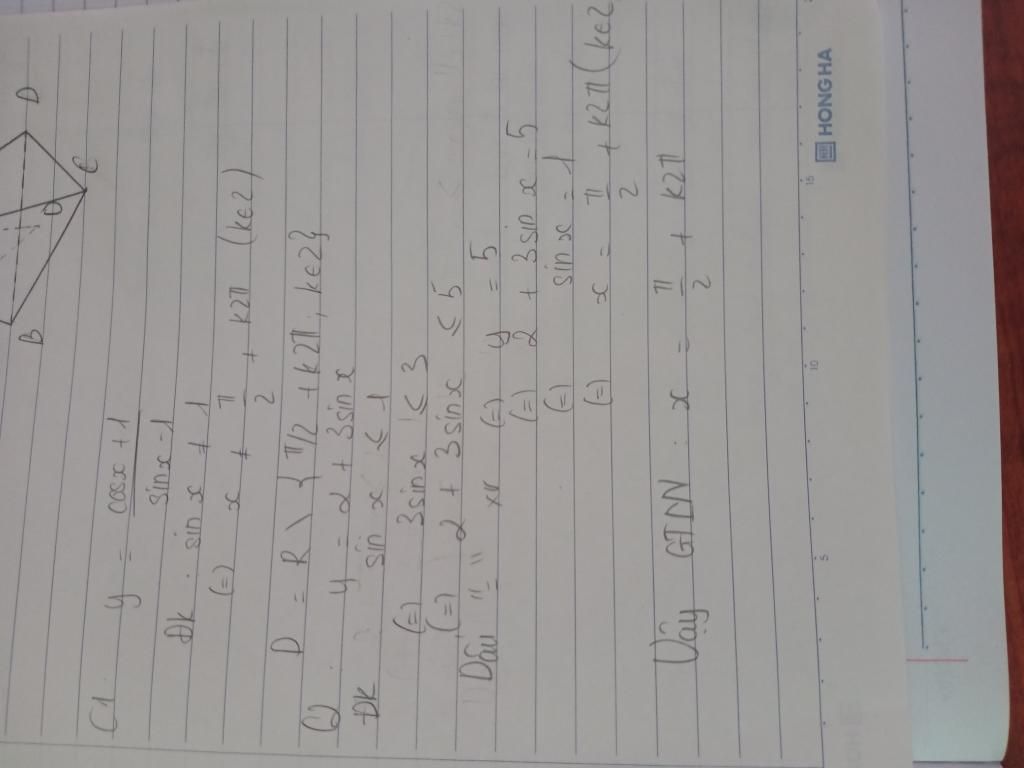 D
B
O
C
C1 y = cosx + 1
sinx - 1
ĐK: sin x ≠ 1
(=) x ≠ π/2 + k2π (k∈Z)
D = R \ { π/2 + k2π, k∈Z}
C2 y = 2 + 3sin x
ĐK sin x ≤ 1
(=) 3sinx ≤ 3
(=) 2 + 3sinx ≤ 5
Dấu "=" xr (=) y = 5
(=) 2 + 3sin x = 5
(=) sinx = 1
(=) x = π/2 + k2π (k∈Z
Vậy GTLN: x = π/2 + k2π
5 10 15
HONG HA